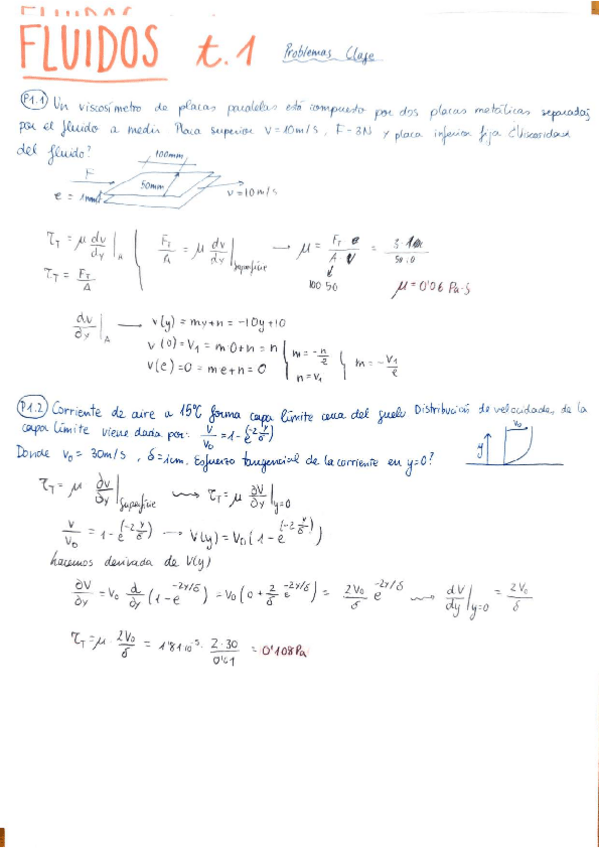 FLUIDOS
FLUIDOS t.1 Problemas Clase
P1.1) Un viscosímetro de placas paralelas está compuesto por dos placas metálicas separadas
por el fluido a medir Placa superior V=10m/s, F=3N y placa inferior fija ¿Viscosidad
del fluido?
100mm
F
50mm
e = 1mm
v=10m/s
τ_T = μ dv/dy |_A
F_T/A = μ dv/dy |_superficie → μ = F_T e / A·V =
τ_T = F_T/A
100 50
μ = 0'06 Pa·s
dv/dy |_A → v(y) = my+n = -10y+10
v(0) = V₁ = m·0+n = n
v(e) = 0 = me+n = 0
m = -n/e
n = v₁
m = -V₁/e
P1.2) Corriente de aire a 15ºC forma capa límite cerca del suelo Distribución de velocidades de la
capa límite viene dada por: V/V₀ = 1 - e^(-2 y/δ)
V₀
y
Donde V₀ = 30m/s, δ = 1cm. Esfuerzo tangencial de la corriente en y=0?
τ_T = μ ∂v/∂y |_superficie ⟿ τ_T = μ ∂V/∂y |_y=0
V/V₀ = 1 - e^(-2 y/δ) → V(y) = V₀ (1 - e^(-2 y/δ))
hacemos derivada de V(y)
∂V/∂y = V₀ d/∂y (1 - e^(-2y/δ)) = V₀ (0 + 2/δ e^(-2y/δ)) = 2V₀/δ e^(-2y/δ) ⟿ dV/dy |_y=0 = 2V₀/δ
τ_T = μ · 2V₀/δ = 1'81·10⁻⁵ · 2·30/0'01 = 0'108Pa